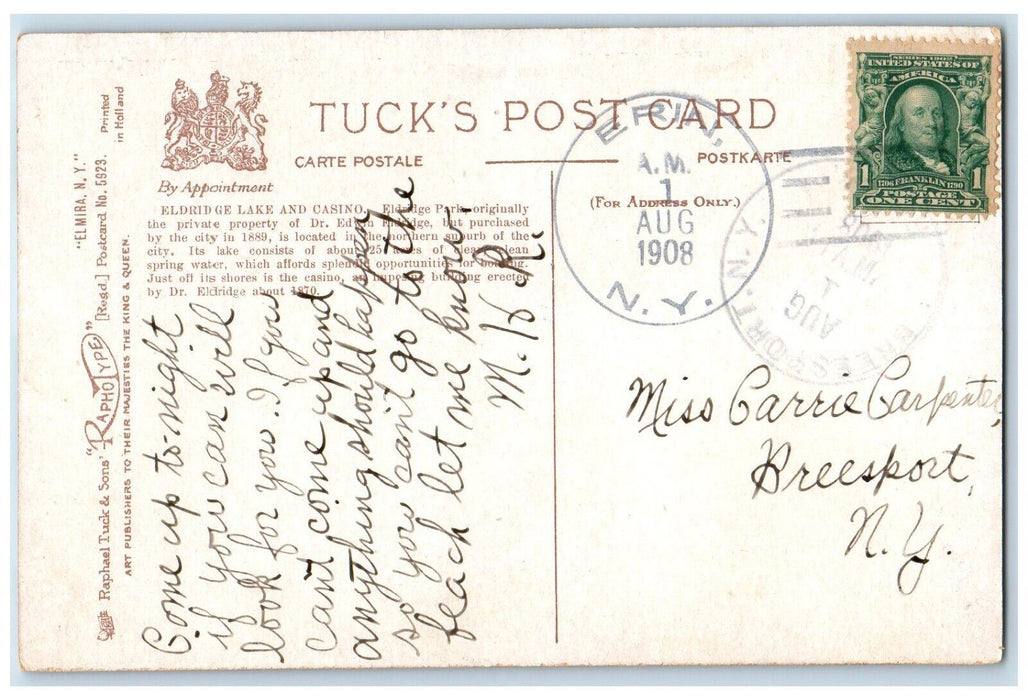 TUCK'S POST CARD
CARTE POSTALE
POSTKARTE
(FOR ADDRESS ONLY.)
By Appointment
ELDRIDGE LAKE AND CASINO. Eldridge Park, originally
the private property of Dr. Edwin Eldridge, but purchased
by the city in 1889, is located in the northern suburb of the
city. Its lake consists of about 25 acres of clear, clean
spring water, which affords splendid opportunities for boating.
Just off its shores is the casino, an imposing building erected
by Dr. Eldridge about 1870.
"ELMIRA, N. Y."
Printed
in Holland
Raphael Tuck & Sons' "RAPHOTYPE" [Regd.] Postcard No. 5923.
ART PUBLISHERS TO THEIR MAJESTIES THE KING & QUEEN.
Come up to-night
if you can will
look for you. If you
can't come up and
anything should happen
so you can't go to the
beach let me know.
M. H. R.
ERIN,
A.M.
1
AUG
1908
N.Y.
BREESPORT. N.Y.
AUG
1
SERIES 1902
UNITED STATES OF
AMERICA
1706 FRANKLIN 1790
1 POSTAGE 1
ONE CENT
Miss Carrie Carpenter
Breesport,
N. Y.